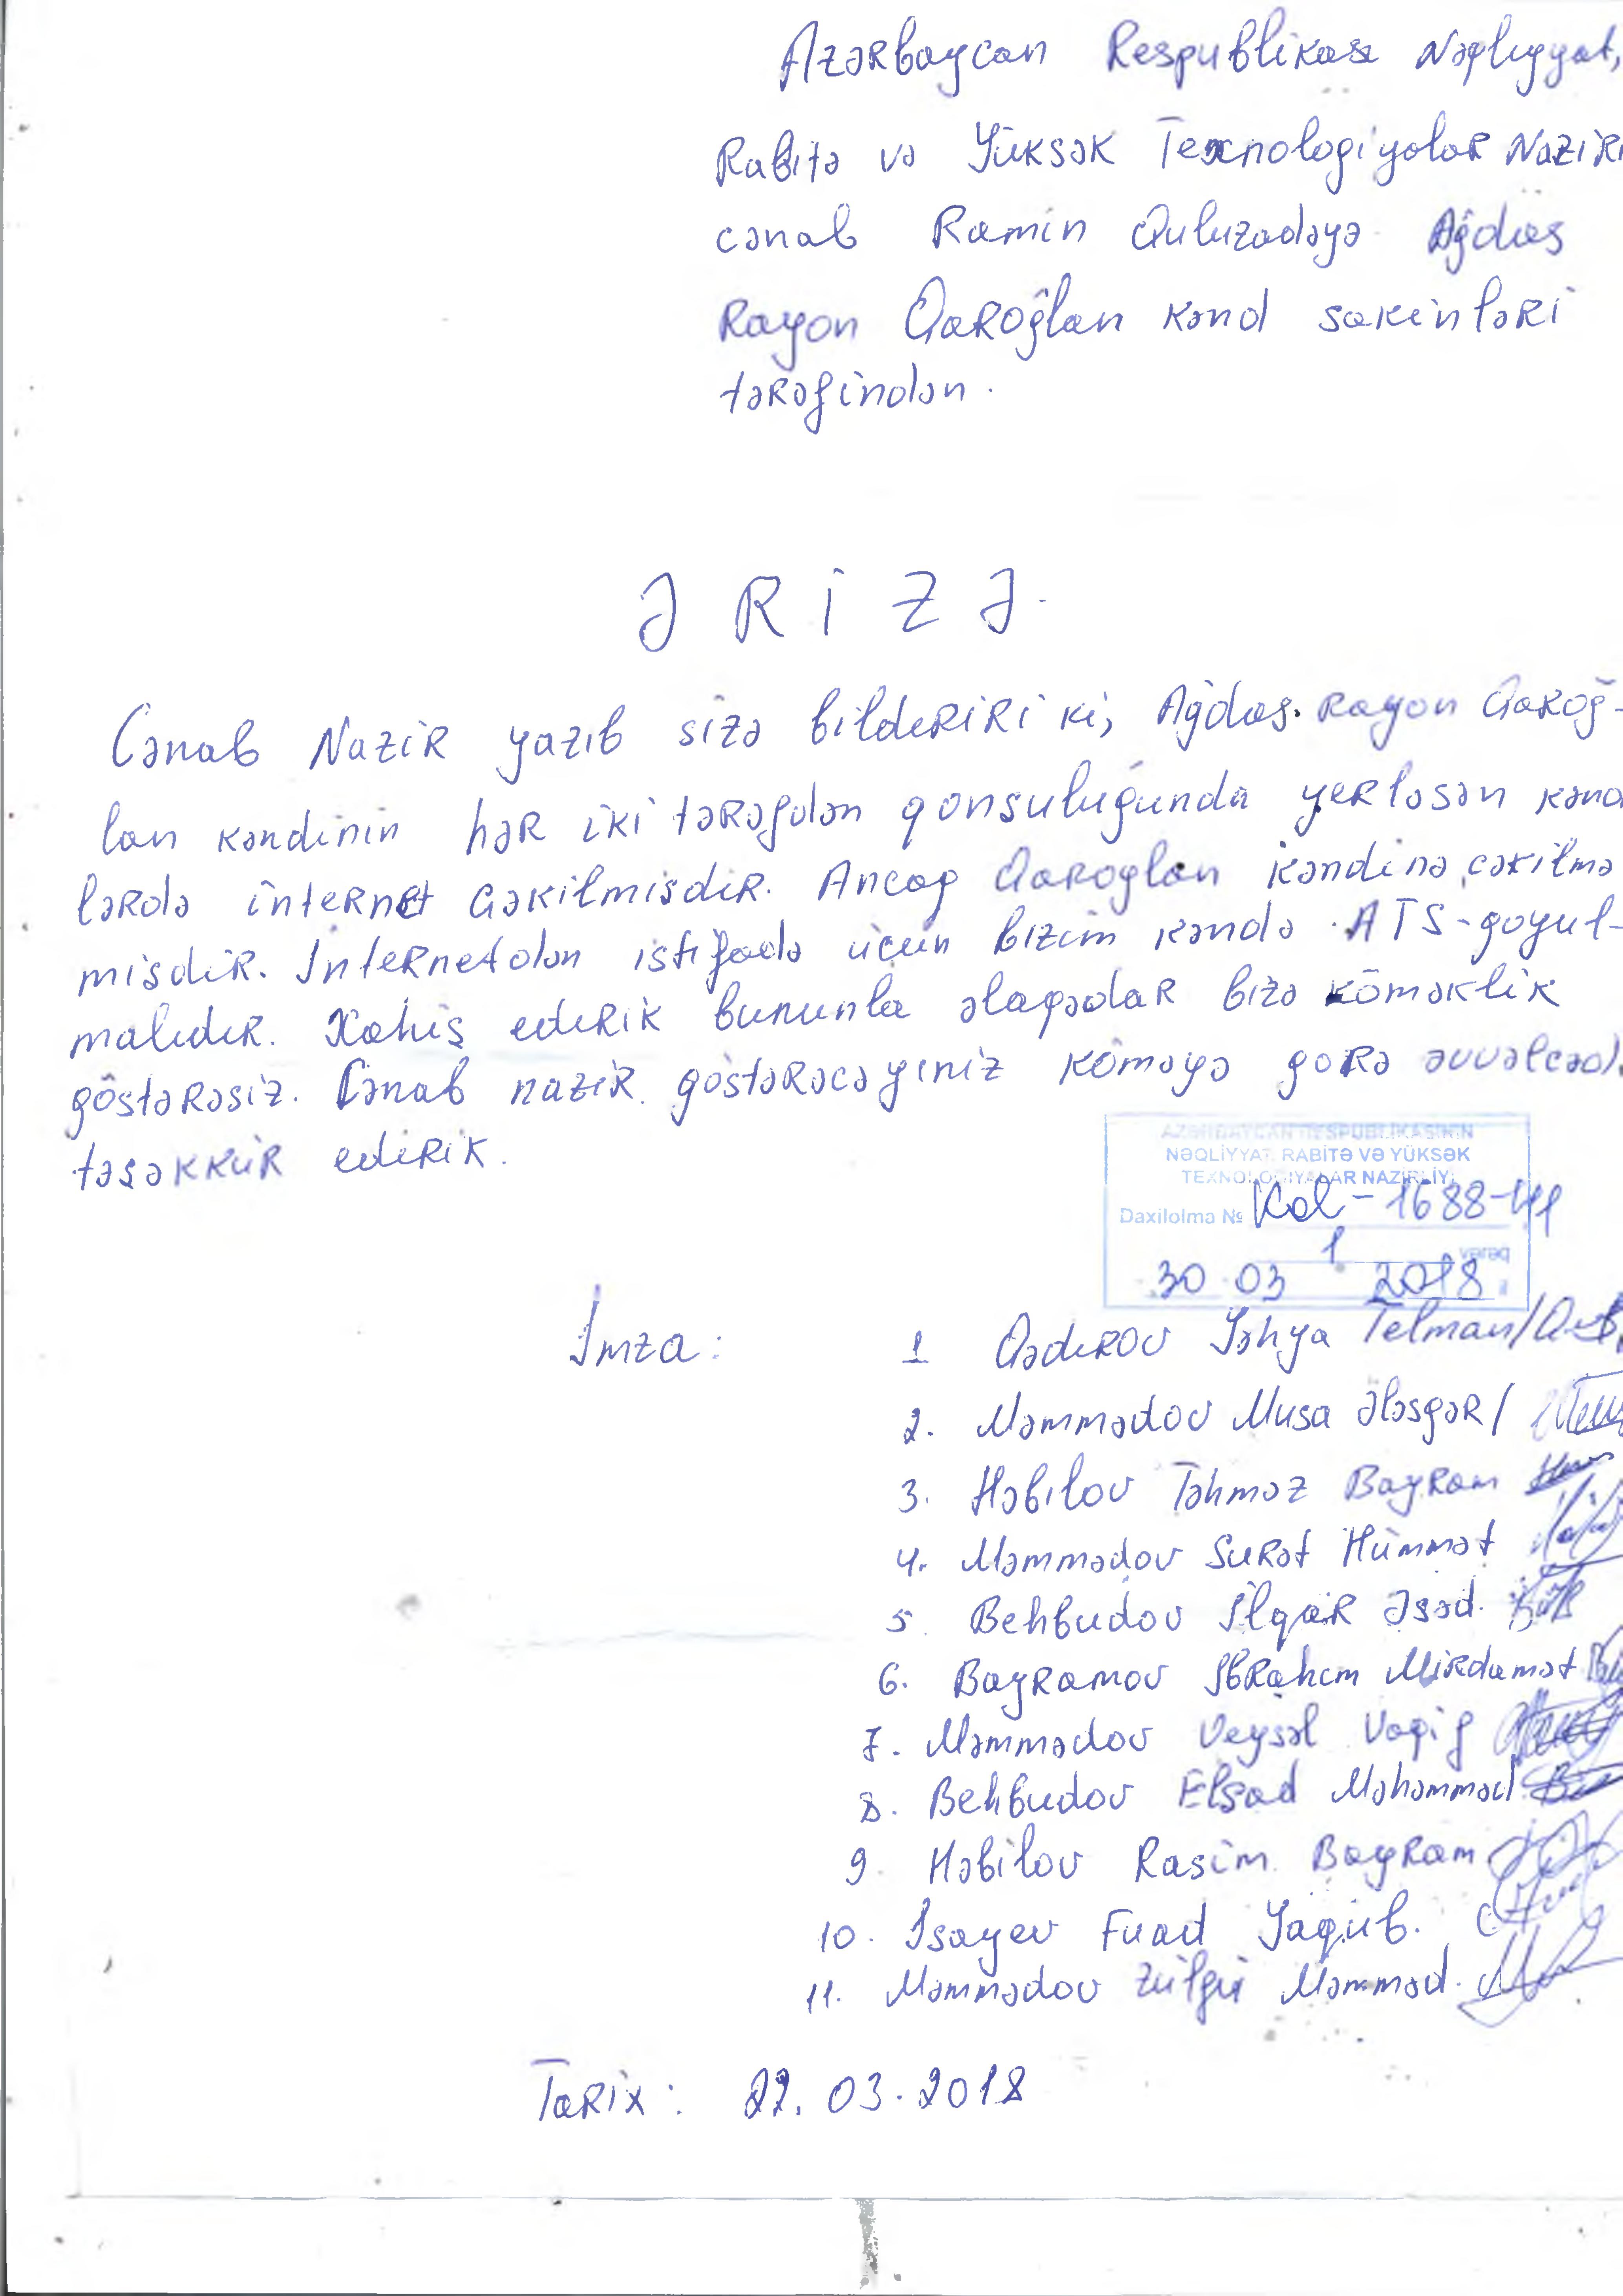 Azərbaycan Respublikası Nəqliyyat,
Rabitə və Yüksək Texnologiyalar Naziri
cənab Ramin Quluzadəyə Ağdaş
Rayon Qaroğlan kənd sakinləri
tərəfindən.
ƏRİZƏ.
Cənab Nazir yazıb sizə bildiririk ki, Ağdaş. Rayon Qaroğ-
lan kəndinin hər iki tərəfdən qonşuluğunda yerləsən kənd
lərdə internet Çəkilmisdir. Ancaq Qaroglan kəndinə çəkilmə
misdir. İnternetdən istifadə üçün bizim kəndə ATS-qoyul-
malıdır. Xahiş edirik bununla əlaqədar bizə köməklik
göstərəsiz. Cənab nazir. göstərəcəyiniz köməyə görə əvvəlcədən
təşəkkür edirik.
AZƏRBAYCAN RESPUBLİKASININ
NƏQLİYYAT, RABİTƏ VƏ YÜKSƏK
TEXNOLOGİYALAR NAZİRLİYİ
Daxilolma № Kol-1688-
1 vərəq
30 03 2018
İmza:
1 Qədirov Yəhya Telman/
2. Məmmədov Musa Ələsgər/
3. Həbilov Təhməz Bayram
4. Məmmədov Surət Hümmət
5. Behbudov İlqar Əsəd.
6. Bayramov İbrahim Mirdamət
7. Məmmədov Veysəl Vaqif
8. Behbudov Elşad Məhəmməd
9. Həbilov Rasim Bayram
10. İsayev Fuad Yaqub.
11. Məmmədov Zülfü Məmməd.
Tarix: 22.03.2018